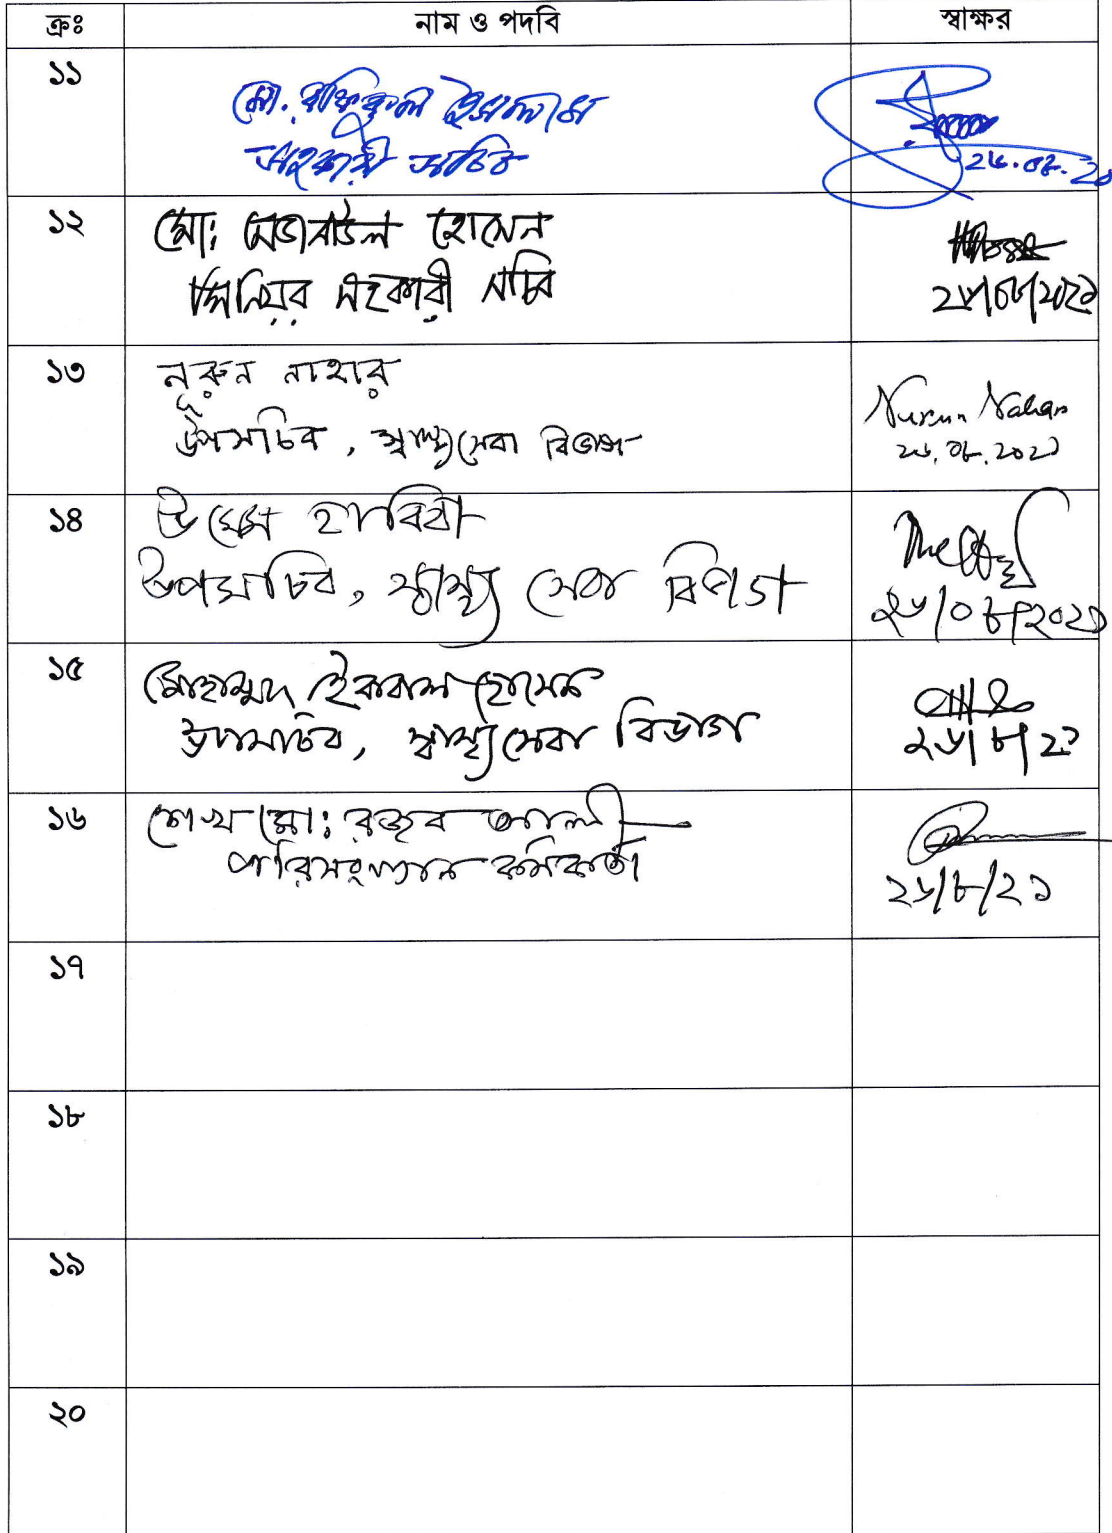 ক্রঃ নাম ও পদবি স্বাক্ষর
১১
মো. রফিকুল ইসলাম
সহকারী সচিব
২৬.০৮.২০
১২
মো: মেজবাউল হোসেন
সিনিয়র সহকারী সচিব
২৬/০৮/২০২১
১৩
নূরুন নাহার
উপসচিব, স্বাস্থ্য সেবা বিভাগ
Nurun Nahar
২৬.০৮.২০২১
১৪
উম্মে হাবিবা
উপসচিব, স্বাস্থ্য সেবা বিভাগ
২৬/০৮/২০২১
১৫
মোহাম্মদ ইকবাল হোসেন
উপসচিব, স্বাস্থ্য সেবা বিভাগ
২৬/৮/২১
১৬
শেখ মো: রজব আলী
পরিসংখ্যান কর্মকর্তা
২৬/৮/২১
১৭
১৮
১৯
২০